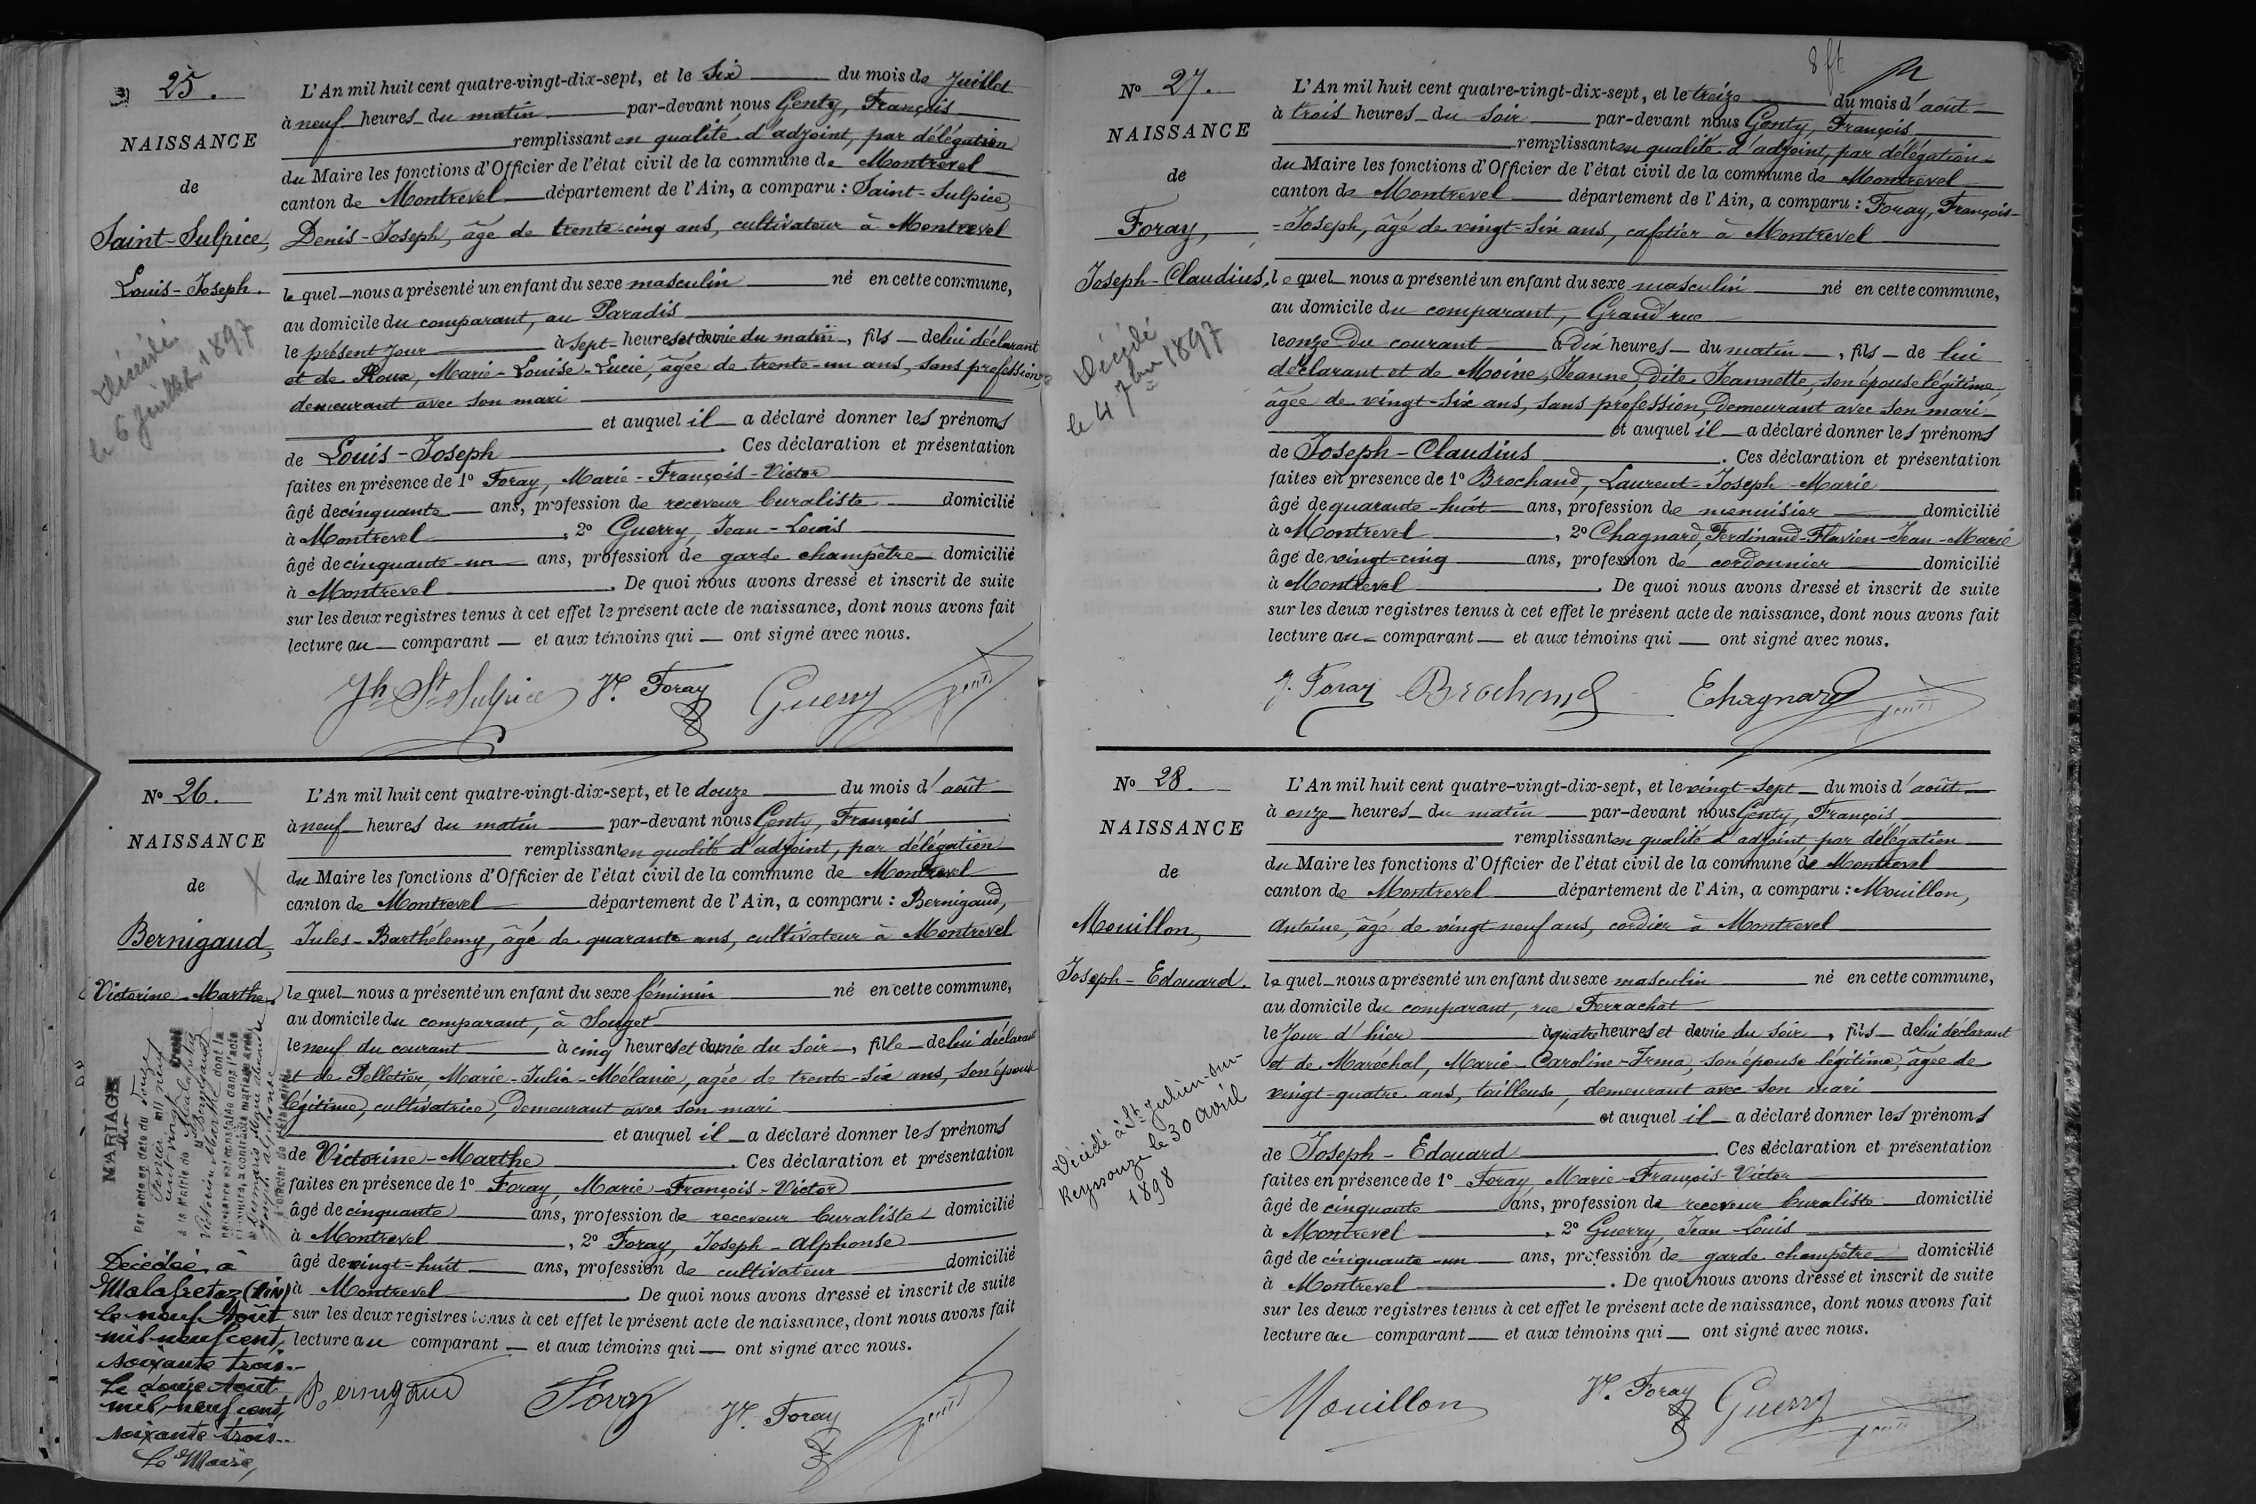 25.
NAISSANCE
de
Saint-Sulpice,
Louis-Joseph.
Décédé
le 6 juillet 1897
L'An mil huit cent quatre-vingt-dix-sept, et le six du mois de juillet
à neuf heures du matin par-devant nous Genty, François
remplissant en qualité d'adjoint, par délégation
du Maire les fonctions d'Officier de l'état civil de la commune de Montrevel
canton de Montrevel département de l'Ain, a comparu : Saint-Sulpice,
Denis-Joseph, âgé de trente-cinq ans, cultivateur à Montrevel
le quel nous a présenté un enfant du sexe masculin né en cette commune,
au domicile du comparant, au Paradis
le présent jour à sept heures et demie du matin, fils de lui déclarant
et de Roux, Marie-Louise-Lucie, âgée de trente-un ans, sans profession
demeurant avec son mari
et auquel il a déclaré donner les prénoms
de Louis-Joseph. Ces déclaration et présentation
faites en présence de 1° Foray, Marie-François-Victor
âgé de cinquante ans, profession de receveur buraliste domicilié
à Montrevel, 2° Guerry, Jean-Louis
âgé de cinquante-un ans, profession de garde champêtre domicilié
à Montrevel. De quoi nous avons dressé et inscrit de suite
sur les deux registres tenus à cet effet le présent acte de naissance, dont nous avons fait
lecture au comparant et aux témoins qui ont signé avec nous.
Jh St Sulpice Vr. Foray Guerry Genty
No 26.
NAISSANCE
de
Bernigaud,
Victorine-Marthe,
MARIAGE
Par acte en date du douze
février mil neuf
cent vingt
à la Mairie de Malafretaz
Mlle Bernigaud
Victorine Marthe dont la
naissance est constatée dans l'acte
ci-contre, a contracté mariage avec
Joseph Alphonse
L'officier de l'état civil
Décédée à
Malafretaz (Ain)
le neuf Août
mil-neuf cent,
soixante trois.-
Le douze Août
mil-neuf cent,
soixante trois.-
Le Maire,
L'An mil huit cent quatre-vingt-dix-sept, et le douze du mois d'août
à neuf heures du matin par-devant nous Genty, François
remplissant en qualité d'adjoint, par délégation
du Maire les fonctions d'Officier de l'état civil de la commune de Montrevel
canton de Montrevel département de l'Ain, a comparu : Bernigaud,
Jules-Barthélemy, âgé de quarante ans, cultivateur à Montrevel
le quel nous a présenté un enfant du sexe féminin né en cette commune,
au domicile du comparant, à Souget
le neuf du courant à cinq heures et demie du soir, fille de lui déclarant
et de Pelletier, Marie-Julia-Mélanie, agée de trente-six ans, son épouse
légitime, cultivatrice, demeurant avec son mari
et auquel il a déclaré donner les prénoms
de Victorine-Marthe. Ces déclaration et présentation
faites en présence de 1° Foray, Marie-François-Victor
âgé de cinquante ans, profession de receveur buraliste domicilié
à Montrevel, 2° Foray, Joseph-Alphonse
âgé de vingt-huit ans, profession de cultivateur domicilié
à Montrevel. De quoi nous avons dressé et inscrit de suite
sur les deux registres tenus à cet effet le présent acte de naissance, dont nous avons fait
lecture au comparant et aux témoins qui ont signé avec nous.
Bernigaud Foray Vr. Foray Genty
8 ft
No 27.
NAISSANCE
de
Foray,
Joseph-Claudius.
Décédé
le 4 7bre 1897
L'An mil huit cent quatre-vingt-dix-sept, et le treize du mois d'août
à trois heures du soir par-devant nous Genty, François
remplissant en qualité d'adjoint, par délégation
du Maire les fonctions d'Officier de l'état civil de la commune de Montrevel
canton de Montrevel département de l'Ain, a comparu : Foray, François-
=Joseph, âgé de vingt-six ans, cafetier à Montrevel
le quel nous a présenté un enfant du sexe masculin né en cette commune,
au domicile du comparant, Grand'rue
le onze du courant à dix heures du matin, fils de lui
déclarant et de Moine, Jeanne, dite Jeannette, son épouse légitime,
âgée de vingt-six ans, sans profession, demeurant avec son mari
et auquel il a déclaré donner les prénoms
de Joseph-Claudius. Ces déclaration et présentation
faites en présence de 1° Brochand, Laurent-Joseph-Marie
âgé de quarante-huit ans, profession de menuisier domicilié
à Montrevel, 2° Chagnard, Ferdinand-Flavien-Jean-Marie
âgé de vingt-cinq ans, profession de cordonnier domicilié
à Montrevel. De quoi nous avons dressé et inscrit de suite
sur les deux registres tenus à cet effet le présent acte de naissance, dont nous avons fait
lecture au comparant et aux témoins qui ont signé avec nous.
J. Foray Brochand Chagnard Genty
No 28.
NAISSANCE
de
Mouillon,
Joseph-Edouard.
Décédé à St Julien-sur-
Reyssouze le 30 avril
1898
L'An mil huit cent quatre-vingt-dix-sept, et le vingt-sept du mois d'août
à onze heures du matin par-devant nous Genty, François
remplissant en qualité d'adjoint par délégation
du Maire les fonctions d'Officier de l'état civil de la commune de Montrevel
canton de Montrevel département de l'Ain, a comparu : Mouillon,
Antoine, âgé de vingt-neuf ans, cordier à Montrevel
le quel nous a présenté un enfant du sexe masculin né en cette commune,
au domicile du comparant, rue Ferrachat
le jour d'hier à quatre heures et demie du soir, fils de lui déclarant
et de Maréchal, Marie-Caroline-Irma, son épouse légitime, âgée de
vingt-quatre ans, tailleuse, demeurant avec son mari
et auquel il a déclaré donner les prénoms
de Joseph-Edouard. Ces déclaration et présentation
faites en présence de 1° Foray Marie-François-Victor
âgé de cinquante ans, profession de receveur buraliste domicilié
à Montrevel, 2° Guerry, Jean-Louis
âgé de cinquante-un ans, profession de garde champêtre domicilié
à Montrevel. De quoi nous avons dressé et inscrit de suite
sur les deux registres tenus à cet effet le présent acte de naissance, dont nous avons fait
lecture au comparant et aux témoins qui ont signé avec nous.
Mouillon Vr. Foray Guerry Genty